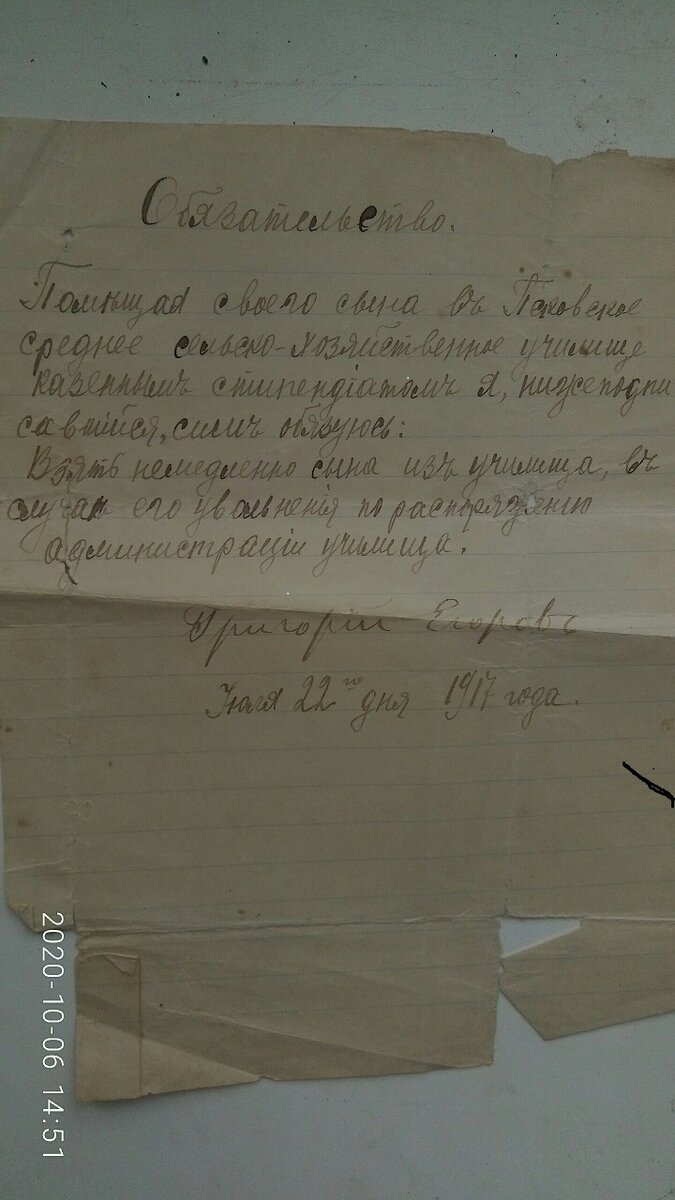 Обязательство.
Помѣщая своего сына въ Псковское
среднее сельско-хозяйственное училище
казеннымъ стипендіатомъ я, нижеподпи
савшійся, симъ обязуюсь:
Взять немедленно сына изъ училища, въ
случаѣ его увольненія по распоряженію
администраціи училища.
Григорій Егоровъ
Іюля 22го дня 1917 года.
2020-10-06 14:51